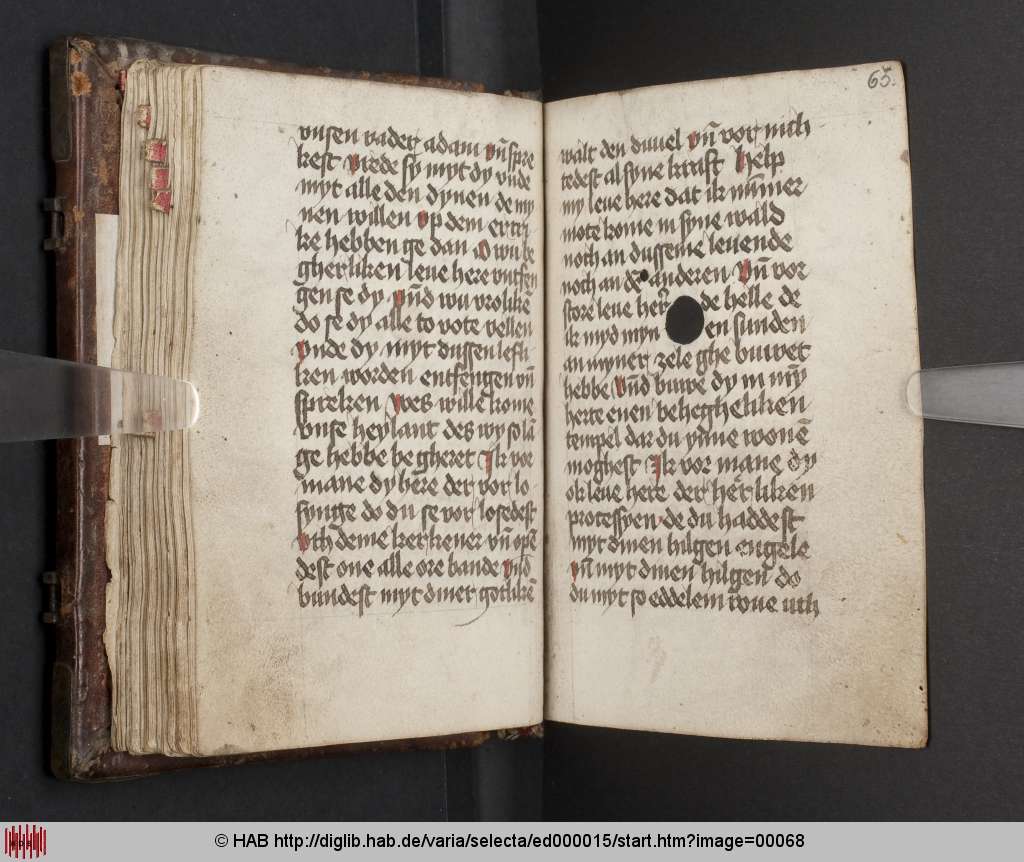 vnsen vader adam vn̄ spre
kest vrede sy myt dy vnde
myt alle den dynen de my
nen willen vp dem ertri
ke hebben ge dan O wu be
gherliken leue here vntfen
gen se dy vnd wu vrolikē
do se dy alle to vote vellen
vnde dy myt dussen lefli
ken worden entfengen vn̄
spreken Wes wille kome
vnse heylant des wy so lā
ge hebbe be gheret Ik vor
mane dy here der vor lo
synge do du se vor losedest
vth deme kerkener vn̄ opē
dest one alle ore bande vnd
bundest myt diner gotlikē
65.
walt den duuel vn̄ vor nich
tedest al syne kraft Help
my leue here dat ik nūmer
mote kome in syne wald
noch an dusseme leuende
noch an de anderen Vn̄ vor
store leue her de helle de
ik myd myn en sunden
an myner zele ghe buwet
hebbe Vnd buwe dy in mȳ
herte enen behegheliken
tempel dar du ynne wonē
moghest Ik vor mane dy
ok leue here der herliken
processyen de du haddest
myt dinen hilgen engele
vn̄ myt dinen hilgen do
du myt so eddelem roue uth
© HAB http://diglib.hab.de/varia/selecta/ed000015/start.htm?image=00068